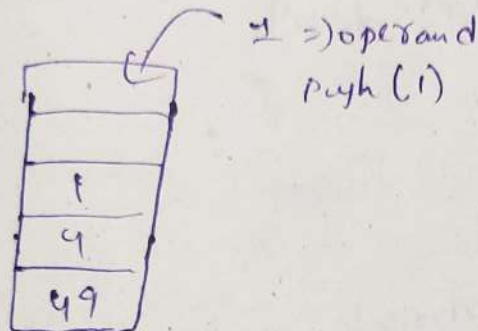 1 => operand
push (1)
1
4
49